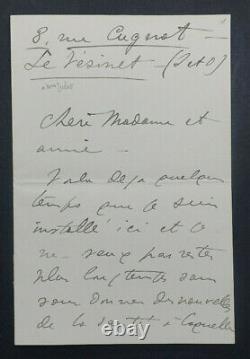 8, rue Cugnot —
Le Vésinet — (S et O)
Chère Madame et
amie —
Voilà déjà quelque
temps que je suis
installé ici et je
ne veux pas rester
plus longtemps sans
vous donner des nouvelles
de la santé à laquelle
© thbtr.com